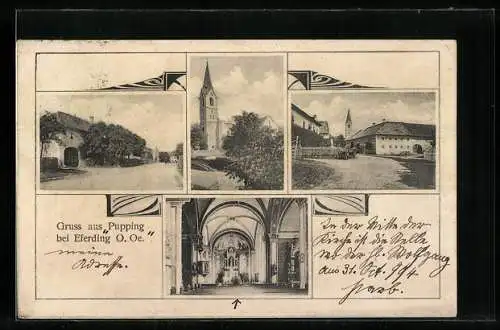 Gruss aus "Pupping"
bei Eferding O. Oe.
meine
Adresse.
In der Mitte der
Kirche ist die Stelle
wo der hl. Wolfgang
am 31. Oct. 994
starb.